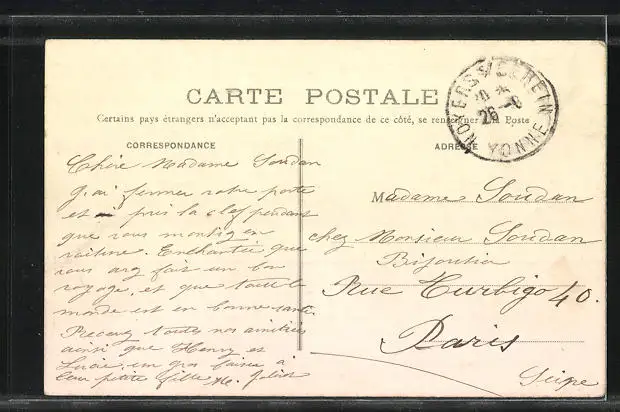 CARTE POSTALE
Certains pays étrangers n'acceptant pas la correspondance de ce côté, se renseigner à la Poste
CORRESPONDANCE
Chère Madame Soudan
J, ai fermer votre porte
et pris la clef pendant
que vous montiez en
voiture. Enchantée que
vous avez fait un bon
voyage, et que tout le
monde est en bonne santé.
Recevez toutes nos amitiés
ainsi que Henry et
Lucie. un gros baiser à
leur petite fille
ADRESSE
NOYERS S/ SEREIN
26 - 8
YONNE
Madame Soudan
chez Monsieur Soudan
Bijoutier
Rue Turbigo 40.
Paris
Seine